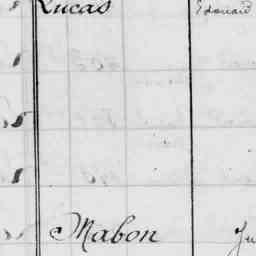 Lucas Edouard
Mabon Ju